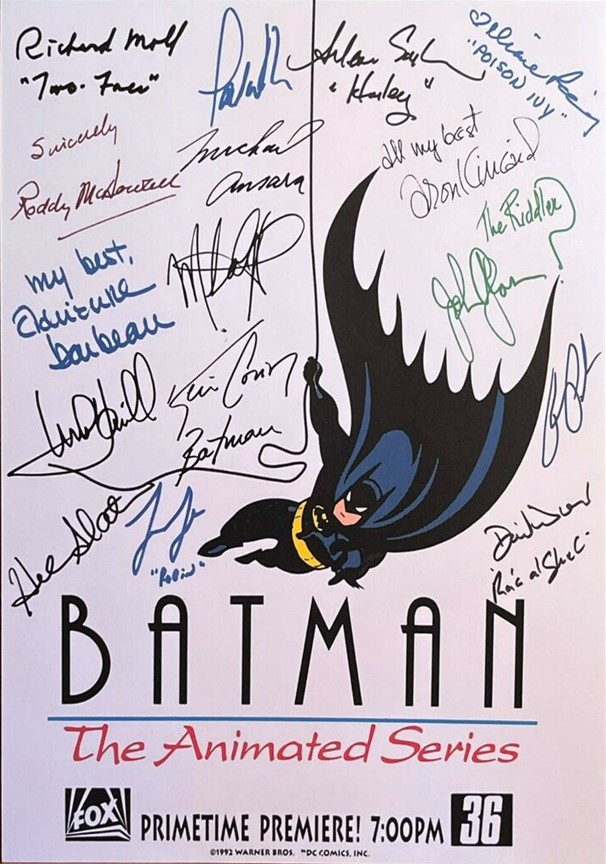 Richard Moll
"Two-Face"
Arleen Sorkin
"Harley"
Diane Pershing
"POISON IVY"
Sincerely
Roddy McDowall
Michael
Ansara
All my best
Aron Kincaid
The Riddler
John Glover
my best,
Adrienne
Barbeau
Mark Hamill
Kevin Conroy
Batman
"Robin"
David Warner
"Ra's al Ghul"
BATMAN
The Animated Series
FOX
PRIMETIME PREMIERE! 7:00PM
36
©1992 WARNER BROS. ™DC COMICS, INC.